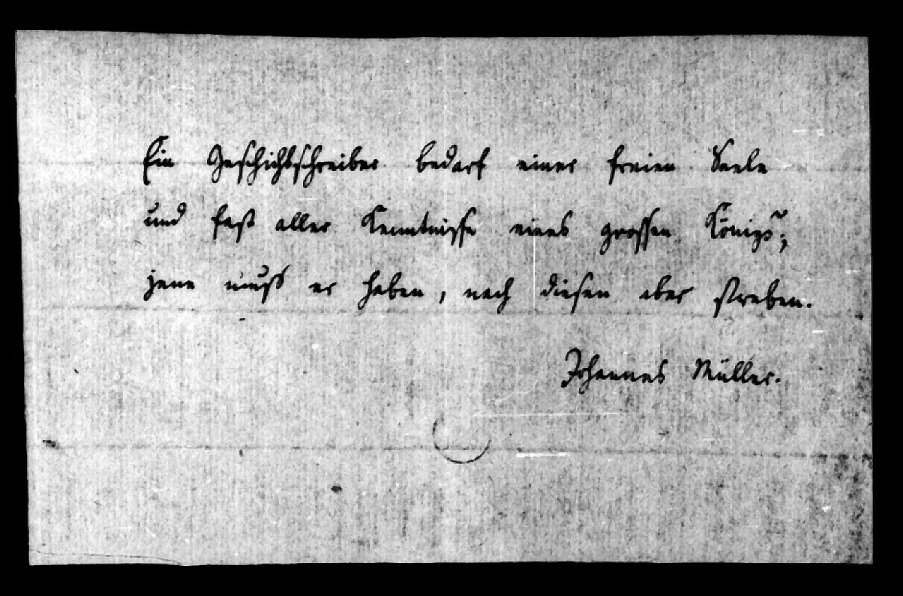 Ein Geschichtschreiber bedarf einer freien Seele
und fast aller Kenntnisse eines grossen Königs;
jene muß er haben, nach diesen aber streben.
Johannes Müller.